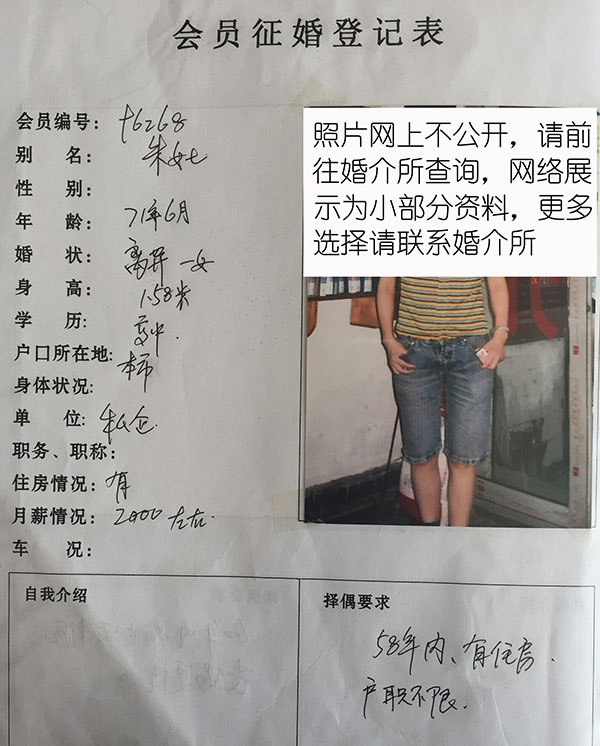 会员征婚登记表
会员编号: t6268
别 名: 朱女士
性 别:
年 龄: 71年6月
婚 状: 离异 一女
身 高: 1.58米
学 历: 高中.
户口所在地: 本市
身体状况:
单 位: 私企
职务、职称:
住房情况: 有
月薪情况: 2000 左右.
车 况:
照片网上不公开，请前
往婚介所查询，网络展
示为小部分资料，更多
选择请联系婚介所
自我介绍
择偶要求
58年内、有住房.
户职不限.